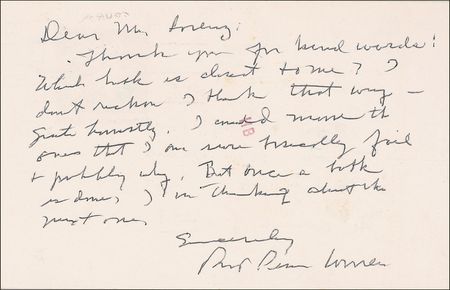 Dear Mr. Lorenz:
Thank you for kind words!
Which book is closest to me? I
don't reckon I think that way –
quite honestly. I could name the
ones that I am sure basically fail
+ probably why. But once a book
is done, I'm thinking about the
next one.
Sincerely
Robt Penn Warren